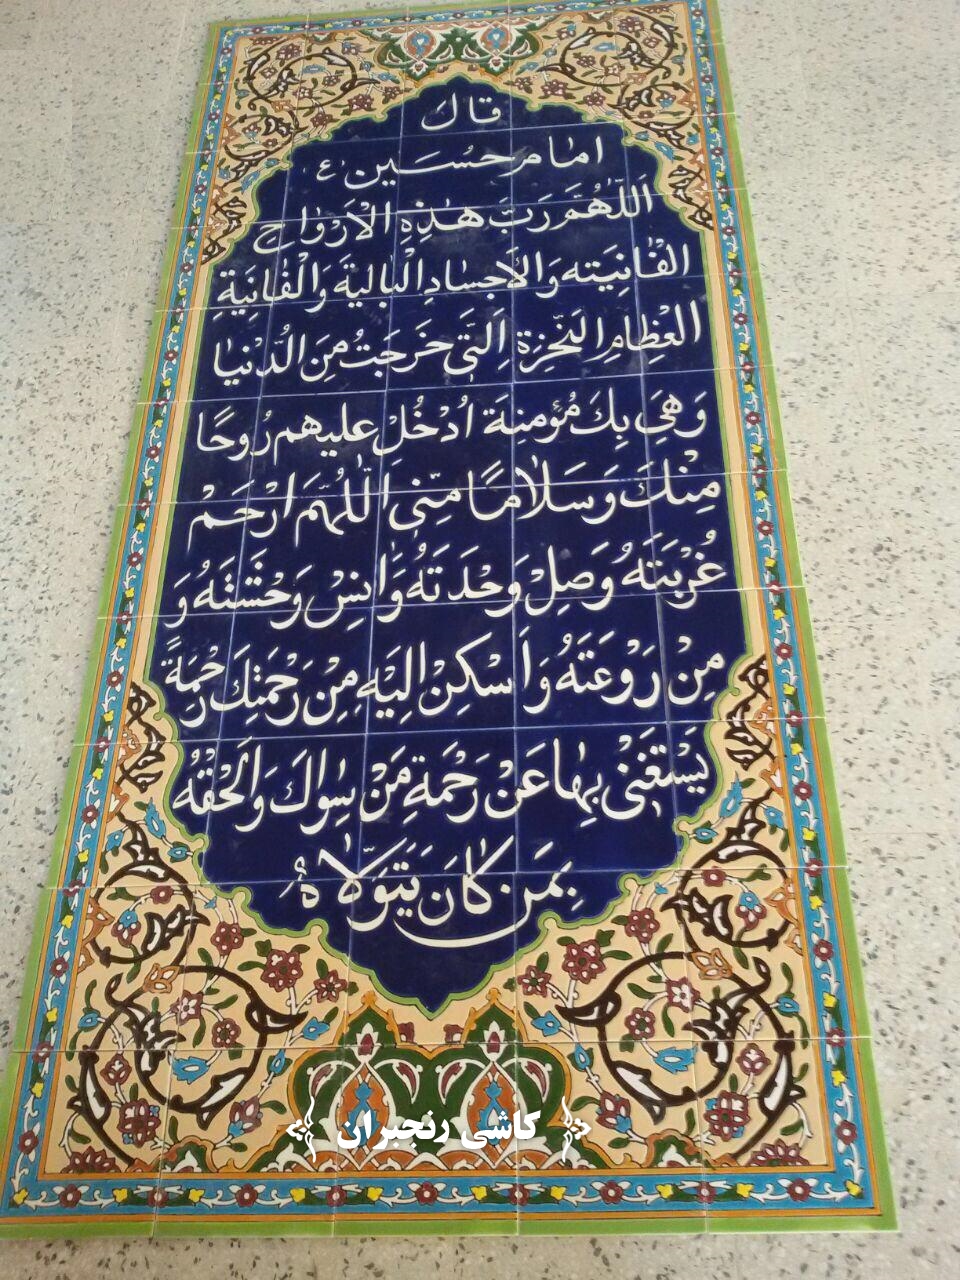 قال
امام حسین ع
اَللّٰهُمَ رَبَّ هٰذِهِ الْاَرْوٰاحِ
الْفٰانِیَته وَالاجسٰادِ الْبٰالیةَ وَالْفٰانِیَةِ
الْعِظٰامِ النَّخِزة اِلَتَی خَرَجَتْ مِنَ الدُّنْیٰا
وَهِیَ بِكَ مُؤمِنِة اُدْخُلْ علیهم رُوحًا
مِنْكَ وَسَلاٰمًا مِنّی اَللّٰهُمَ ارْحَمْ
غُرْبَتَهُ وَصِلْ وَحْدَتَهُ وَاٰنِسْ وَحْشَتَهُ وَ
مِنْ رَوْعَتَهُ وَاَسْكِنْ اِلیَهِ مِنْ رَحْمَتِكَ رَحْمَةً
یَسْتَغنْیٖ بِهٰا عَنْ رَحْمَةِ مَنْ سِوٰاكَ وَاَلْحِقْهُ
بِمَن كٰانَ یَتَوَلاّٰهُ
کاشی رنجبران